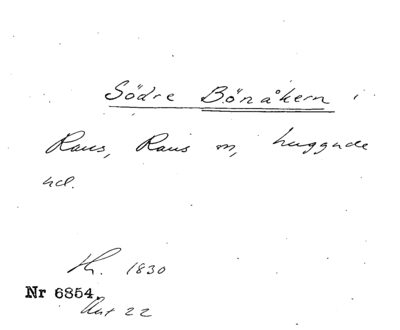 Södre Bönåkern i
Raus, Raus sn, huggude
ucl.
H. 1830
Nr 6854.
Akt 22